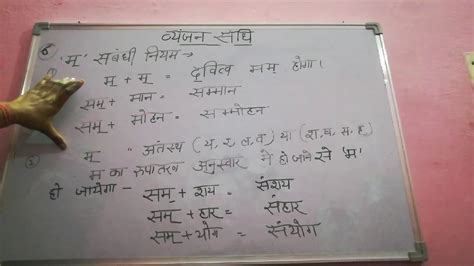 व्यंजन संधि
"म्" संबंधी नियम →
म् + म् = द्वित्व सम् होगा।
सम् + मान = सम्मान
सम् + मोहन = सम्मोहन
② म् " अंतस्थ (य, र, ल, व) या (श, ष, स, ह)
म् का रुपांतरण अनुस्वार में हो जाने से 'म'
हो जायेगा -
सम् + शय = संशय
सम् + हार = संहार
सम् + योग = संयोग